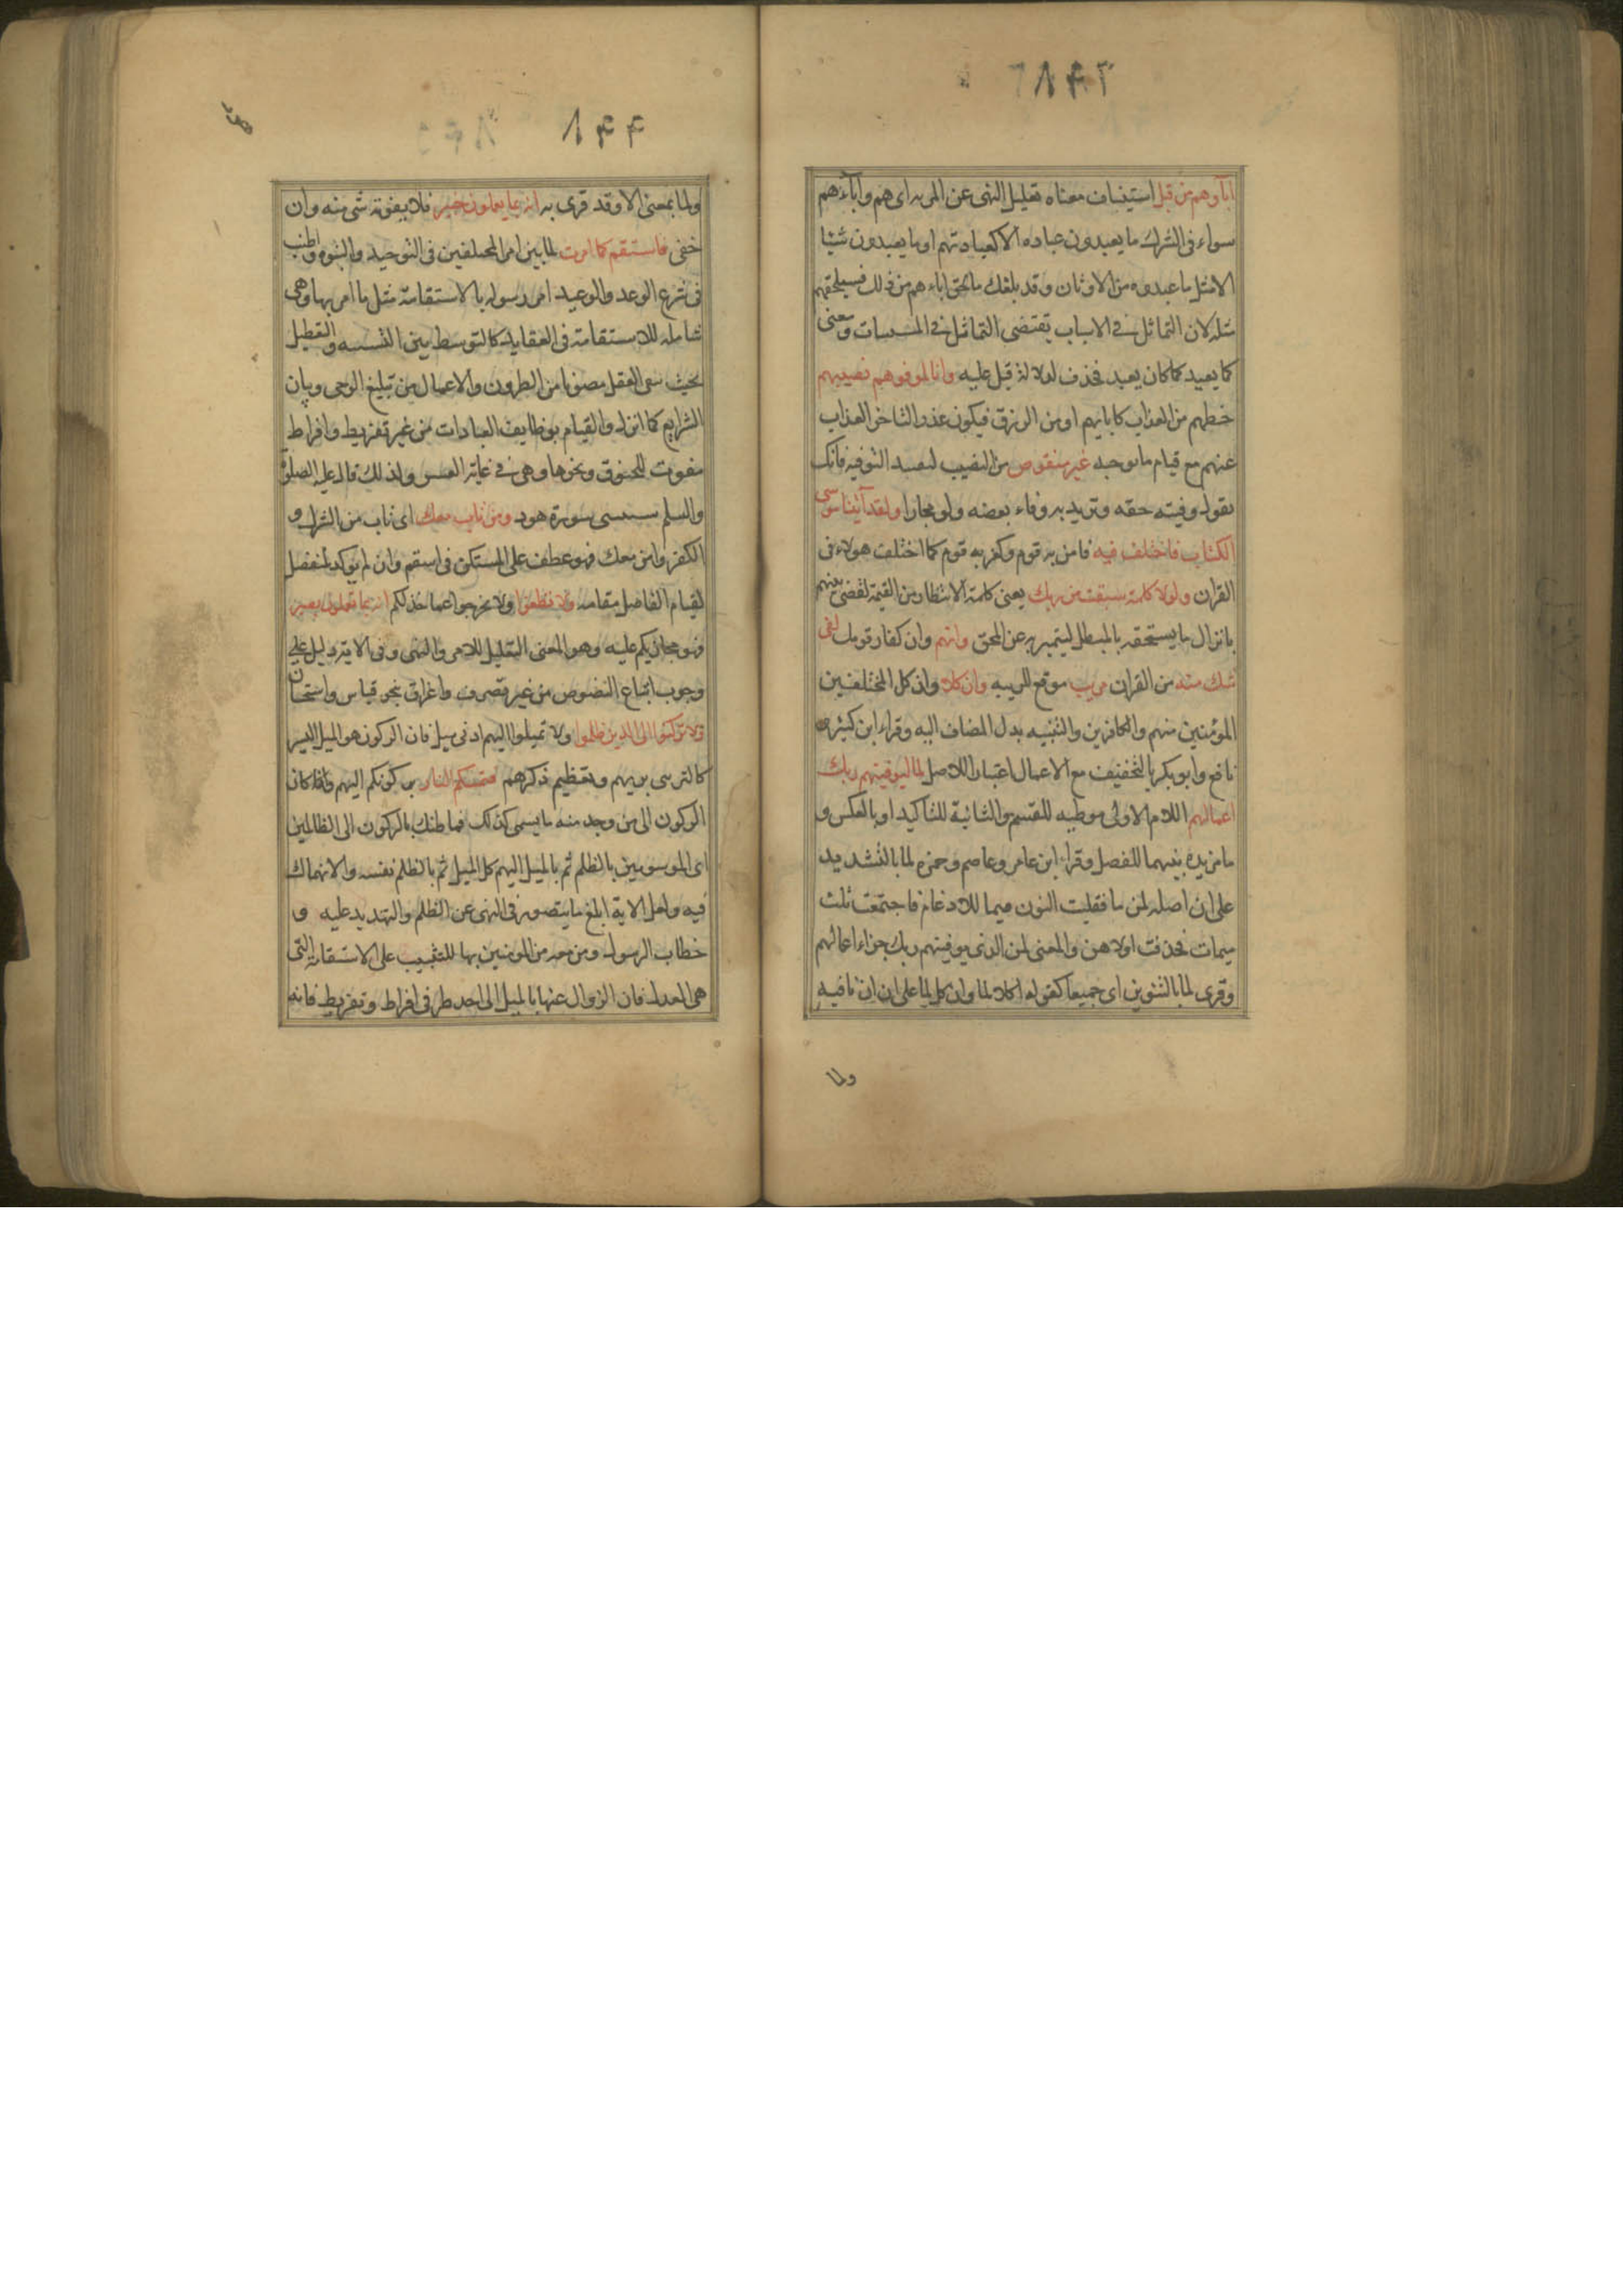 اباوهم من قبل استيناف معناه تعليل النهى عن المريه اى هم واباءهم
سواء فى الشرك ما يعبدون عباده الا كعبادتهم او ما يعبدون شيئا
الا مثل ما عبدوه من الاوثان وقد بلغك ما لحق اباءهم من ذلك فسيلحقهم
مثله لان التماثل فى الاسباب يقتضى التماثل فى المسببات ومعنى
كما يعبد كما كان يعبد فحذف لدلالة قبل عليه وانا لموفوهم نصيبهم
حظهم من العذاب كابايهم او من الرزق فيكون عذرا لتاخر العذاب
عنهم مع قيام ما يوجبه غير منقوص من النصيب لتقييد التوفيه فانك
تقول وفيته حقه وتريد به وفاء بعضه ولو مجازا ولقد آتينا موسى
الكتاب فاختلف فيه فامن به قوم وكفر به قوم كما اختلف هولاء فى
القران ولولا كلمة سبقت من ربك يعنى كلمة الانتظار من القيمة لقضى بينهم
بانزال ما يستحقه المبطل ليتميز به عن المحق وانهم وان كفار قومك لفى
شك منه من القران مريب موقع للريبه وان كلا وان كل المختلفين
المؤمنين منهم والكافرين والتنبيه بدل المضاف اليه وقراء ابن كثير و
نافع وابو بكر بالتخفيف مع الاعمال اعتبارا للاصل لما ليوفينهم ربك
اعمالهم اللام الاولى موطيه للقسم والثانية للتاكيد او بالعكس و
ما مزيده بينهما للفصل وقراء ابن عامر وعاصم وحمزه لما بالتشديد
على ان اصله لمن ما فقلبت النون ميما للادغام فاجتمعت ثلث
ميمات فحذفت اولاهن والمعنى لمن الذى يوفينهم ربك جزاء اعمالهم
وقرى لما بالتنوين اى جميعا كقوله اكلا لما وان كل لما على ان ان نافيه
ولما
٨٤٤
ولما بمعنى الا وقد قرى به انه بما يعملون خبير فلا يفوته شى منه وان
خفى فاستقم كما امرت لما بين امر المختلفين فى التوحيد والنبوه واطنب
فى شرح الوعد والوعيد امر رسوله بالاستقامة مثل ما امر بها وهى
شامله للاستقامة فى العقايد كالتوسط بين التشبيه والتعطيل
بحيث يبقى العقل مصونا من الطرفين والاعمال من تبليغ الوحى وبيان
الشرايع كما انزل والقيام بوظايف العبادات من غير تفريط وافراط
مفوت للحقوق ونحوها وهى فى غاية العسر ولذلك قال عليه الصلوة
والسلم شيبتنى سورة هود ومن تاب معك اى تاب من الشرك و
الكفر وامن معك فهو عطف على المستكن فى استقم وان لم يوكد بمنفصل
لقيام الفاصل مقامه ولا تطغوا ولا تخرجوا عما حد لكم انه بما تعملون بصير
فهو مجازيكم عليه وهو المعنى التعليل للامر والنهى وفى الاية دليل على
وجوب اتباع النصوص من غير تصرف واغراق بنحو قياس واستحسان
ولا تركنوا الى الذين ظلموا ولا تميلوا اليهم ادنى ميل فان الركون هو الميل اليسير
كالتزيى بزيهم وتعظيم ذكرهم فتمسكم النار بركونكم اليهم واذا كان
الركون الى من وجد منه ما يسمى كذلك فما ظنك بالركون الى الظالمين
اى الموسومين بالظلم ثم بالميل اليهم كل الميل ثم بالظلم نفسه والانهماك
فيه ولعل الاية ابلغ ما يتصور فى النهى عن الظلم والتهديد عليه و
خطاب الرسول ومن معه من المومنين بها للتثبيت على الاستقامة التى
هى العدل فان الزوال عنها بالميل الى احد طرفى افراط وتفريط فانه